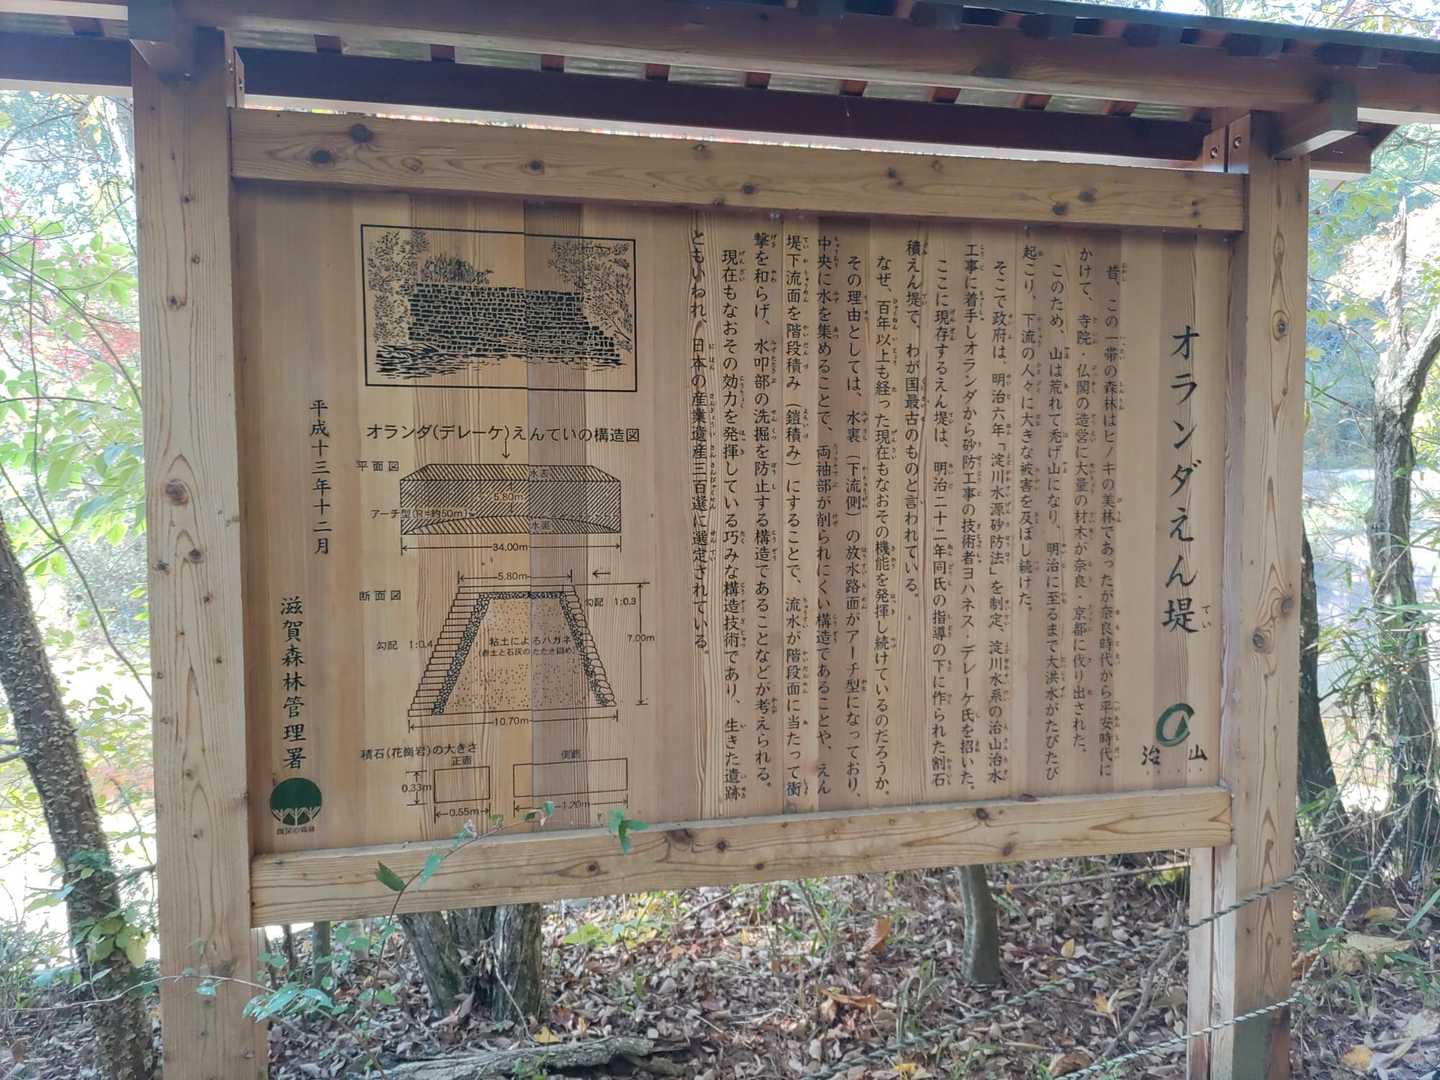 オランダえん堤
昔、この一帯の森林はヒノキの美林であったが奈良時代から平安時代に
かけて、寺院・仏閣の造営に大量の材木が奈良・京都に伐り出された。
このため、山は荒れて禿げ山になり、明治に至るまで大洪水がたびたび
起こり、下流の人々に大きな被害を及ぼし続けた。
そこで政府は、明治六年「淀川水源砂防法」を制定、淀川水系の治山治水
工事に着手しオランダから砂防工事の技術者ヨハネス・デレーケ氏を招いた。
ここに現存するえん堤は、明治二十二年同氏の指導の下に作られた割石
積えん堤で、わが国最古のものと言われている。
なぜ、百年以上も経った現在もなおその機能を発揮し続けているのだろうか。
その理由としては、水裏（下流側）の放水路面がアーチ型になっており、
中央に水を集めることで、両袖部が削られにくい構造であることや、えん
堤下流面を階段積み（鎧積み）にすることで、流水が階段面に当たって衝
撃を和らげ、水叩部の洗掘を防止する構造であることなどが考えられる。
現在もなおその効力を発揮している巧みな構造技術であり、生きた遺跡
ともいわれ、日本の産業遺産三百選に選定されている。
治山
オランダ(デレーケ)えんていの構造図
平面図
水表
5.80m
アーチ型(R=約50m)
水裏
34.00m
断面図
5.80m
勾配 1:0.3
勾配 1:0.4
粘土によるハガネ
(赤土と石灰のたたき固め)
7.00m
10.70m
積石(花崗岩)の大きさ
正面
側面
0.33m
0.55m
1.20m
平成十三年十二月
滋賀森林管理署
国民の森林